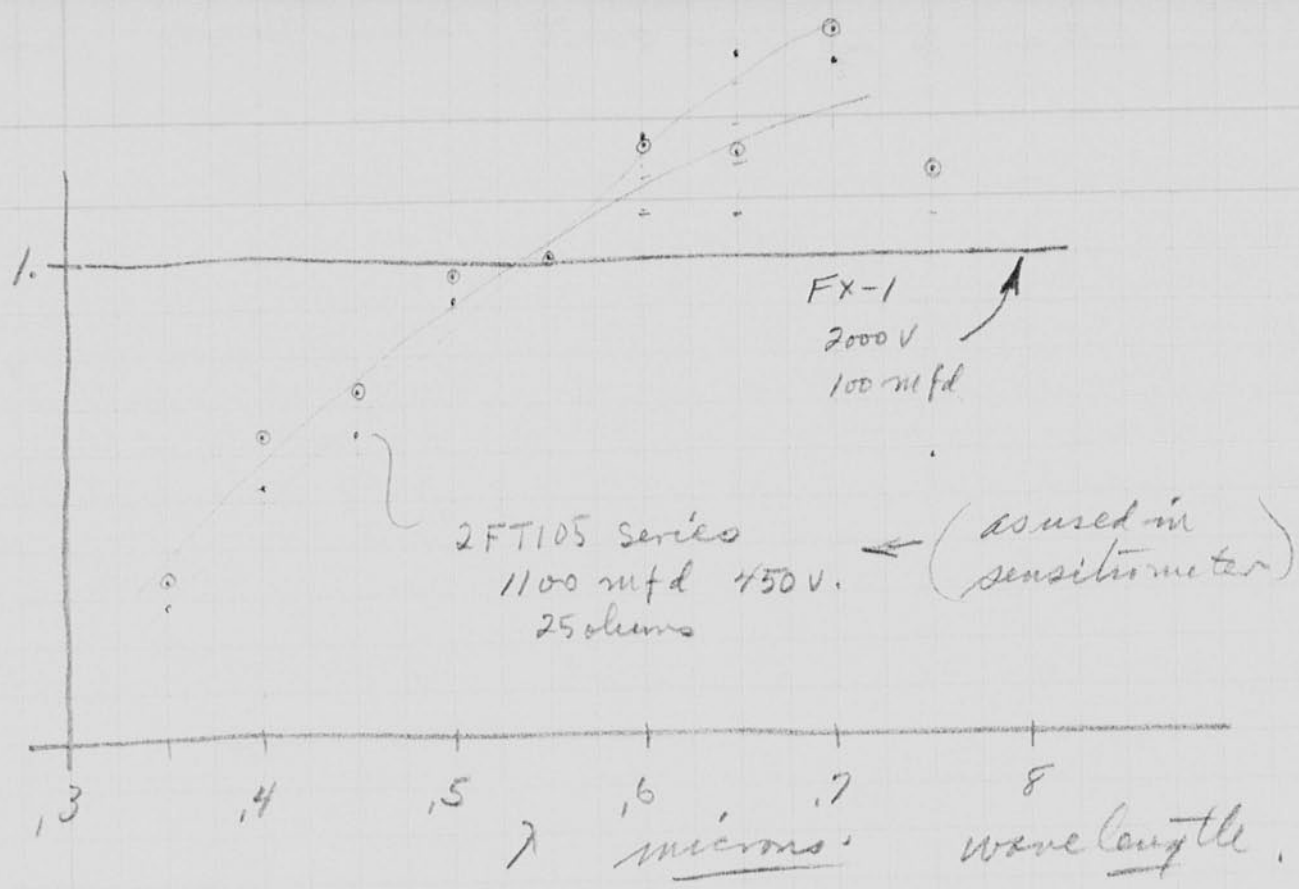 1.
FX-1
2000 V
100 mfd
2FT105 Series
1100 mfd 450 V.
25 ohms
← (as used in
sensitometer)
,3 ,4 ,5 ,6 ,7 8
λ microns. wavelength.